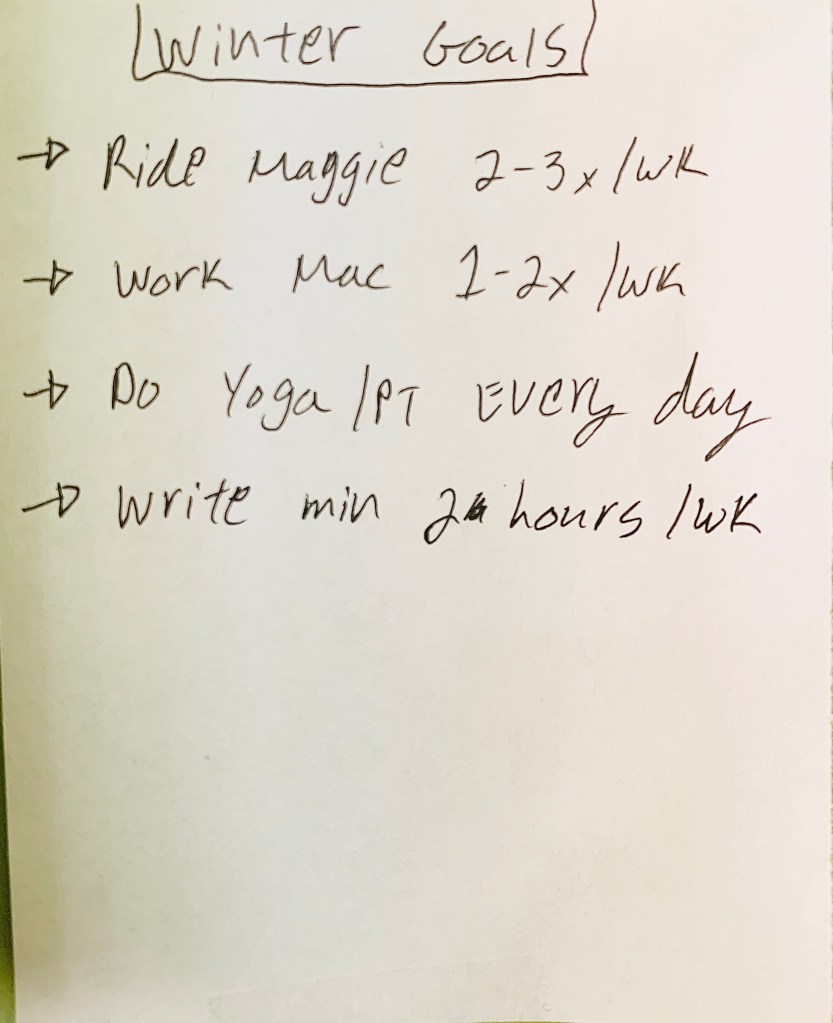 Winter Goals
→ Ride Maggie 2-3x/wk
→ Work Mac 1-2x/wk
→ Do Yoga/PT Every day
→ Write min 2 hours/wk